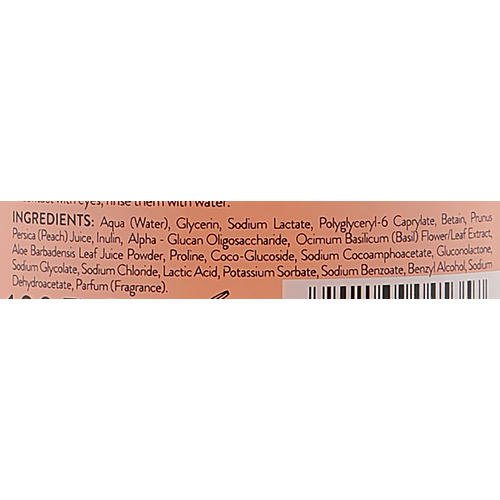 contact with eyes, rinse them with water.
INGREDIENTS: Aqua (Water), Glycerin, Sodium Lactate, Polyglyceryl-6 Caprylate, Betain, Prunus
Persica (Peach) Juice, Inulin, Alpha - Glucan Oligosaccharide, Ocimum Basilicum (Basil) Flower/Leaf Extract,
Aloe Barbadensis Leaf Juice Powder, Proline, Coco-Glucoside, Sodium Cocoamphoacetate, Gluconolactone,
Sodium Glycolate, Sodium Chloride, Lactic Acid, Potassium Sorbate, Sodium Benzoate, Benzyl Alcohol, Sodium
Dehydroacetate, Parfum (Fragrance).